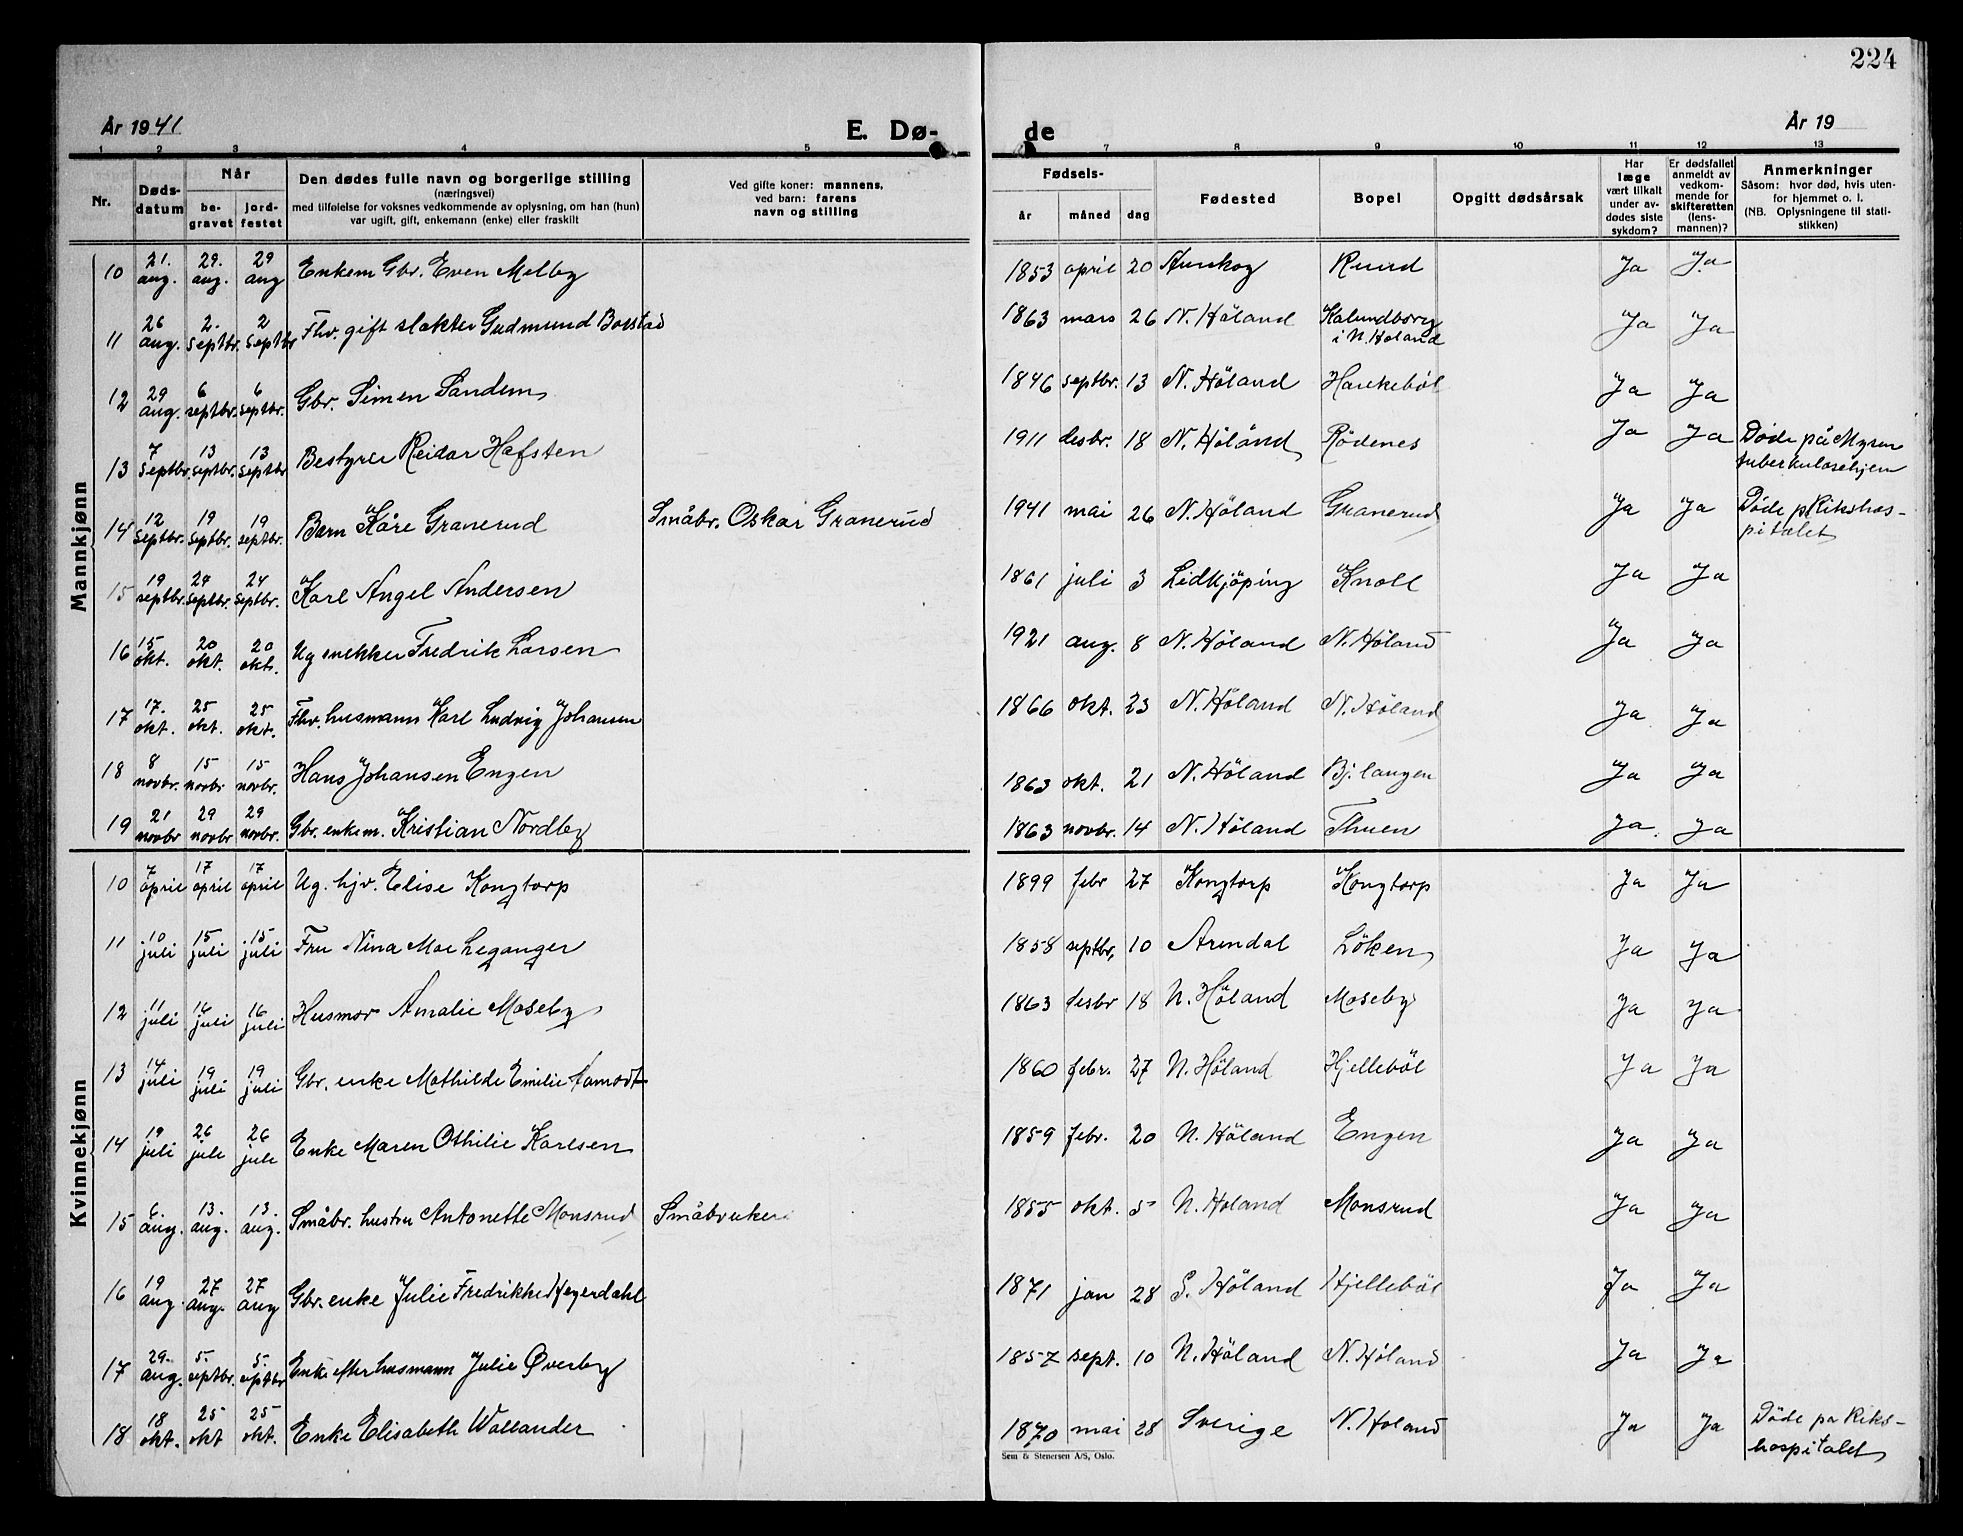 224
År 1941
E. Dø-
de
År 19
1 2 3 4 5 7 8 9 10 11 12 13
Nr.
Døds-
datum
Når
be-
gravet
jord-
festet
Den dødes fulle navn og borgerlige stilling
(næringsvei)
med tilføielse for voksnes vedkommende av oplysning, om han (hun)
var ugift, gift, enkemann (enke) eller fraskilt
Ved gifte koner: mannens,
ved barn: farens
navn og stilling
Fødsels-
år måned dag
Fødested
Bopel
Opgitt dødsårsak
Har
læge
vært tilkalt
under av-
dødes siste
sykdom?
Er dødsfallet
anmeldt av
vedkom-
mende for
skifteretten
(lens-
mannen)?
Anmerkninger
Såsom: hvor død, hvis uten-
for hjemmet o. l.
(NB. Oplysningene til stati-
stikken)
Mannkjønn
10 21. aug. 29. aug. 29 aug Enkem Gbr. Even Melby 1853 april 20 Aurskog Ruud Ja Ja
11 26 aug. 2. septbr. 2 septbr Fhv. gift slakter Gudmund Borstad 1863 mars 26 N. Höland Kalundborg i N. Høland Ja Ja
12 29 aug. 6 septbr. 6 septbr. Gbr. Simen Sandem 1846 septbr. 13 N. Höland Harekeböl Ja Ja
13 7 septbr. 13 septbr. 13 septbr Bestyrer Reidar Hafsten 1911 desbr. 18 N. Höland Rödenes Ja Ja Döde på Myren
tuberkulosehjem
14 12 septbr. 19 septbr. 19 septbr. Barn Kåre Granerud Småbr. Oskar Granerud 1941 mai 26 N. Höland Granerud Ja Ja Döde p Rikshos-
pitalet
15 19 septbr. 24 septbr. 24 septbr. Karl Angel Andersen 1861 juli 3 Lidkjöping Knoll Ja Ja
16 15 okt. 20 okt. 20 okt. Ug snekker Fredrik Larsen 1921 aug. 8 N. Höland N. Höland Ja Ja
17 17. okt. 25 okt. 25 okt. Fhv. husmann Karl Ludvig Johansen 1866 okt. 23 N. Höland N. Höland Ja Ja
18 8 novbr. 15 novbr 15 novbr. Hans Johansen Engen 1863 okt. 21 N. Höland Bj. langen Ja Ja
19 21 novbr 29 novbr 29 novbr. Gbr. enkem. Kristian Nordby 1863 novbr. 14 N. Höland Thuen Ja. Ja
Kvinnekjønn
10 7 april 17 april 17 april Ug. hjv. Elise Kongtorp 1899 febr 27 Kongtorp Kongtorp Ja Ja
11 10 juli 15 juli 15 juli Fru Nina Moe Leganger 1858 septbr. 10 Arendal Löken Ja Ja
12 11 juli 16 juli 16 juli Husmor Amalie Moseby 1863 desbr 18 N. Höland Moseby Ja Ja
13 14 juli 19 juli 19 juli Gbr. enke Mathilde Emilie Aamodt 1860 febr. 27 N. Höland Hjelleböl Ja Ja
14 19 juli 26 juli 26 juli Enke Maren Othilie Karlsen 1859 febr. 20 N. Höland Engen Ja Ja
15 6. aug. 13. aug. 13. aug. Småbr. hustru Antonette Monsrud Småbruker 1855 okt. 5 N. Höland Monsrud Ja Ja
16 19 aug. 27 aug. 27 aug Gbr. enke Julie Fredrikke Heyerdahl 1871 jan 28 S. Höland Hjelleböl Ja Ja
17 29. aug. 5. septbr. 5. septbr Enke efter husmann Julie Øverby 1857 sept. 10 N. Höland N. Höland Ja Ja
18 18 okt. 25 okt 25 okt. Enke Elisabeth Wallander 1870 mai 28 Sverige N. Höland Ja Ja Döde pa Riks-
hospitalet
Sem & Stenersen A/S, Oslo.